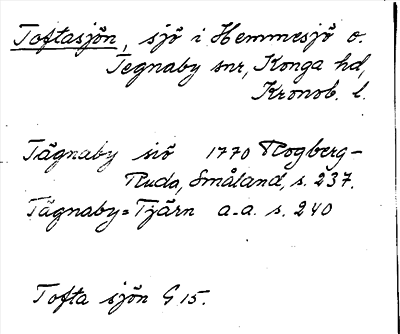 Toftasjön, sjö i Hemmesjö o.
Tegnaby snr, Konga hd,
Kronob. l.
Tägnaby siö 1770 Rogberg-
Ruda, Småland, s. 237.
Tägnaby=Tjärn a.a. s. 240
Tofta sjön G 15.